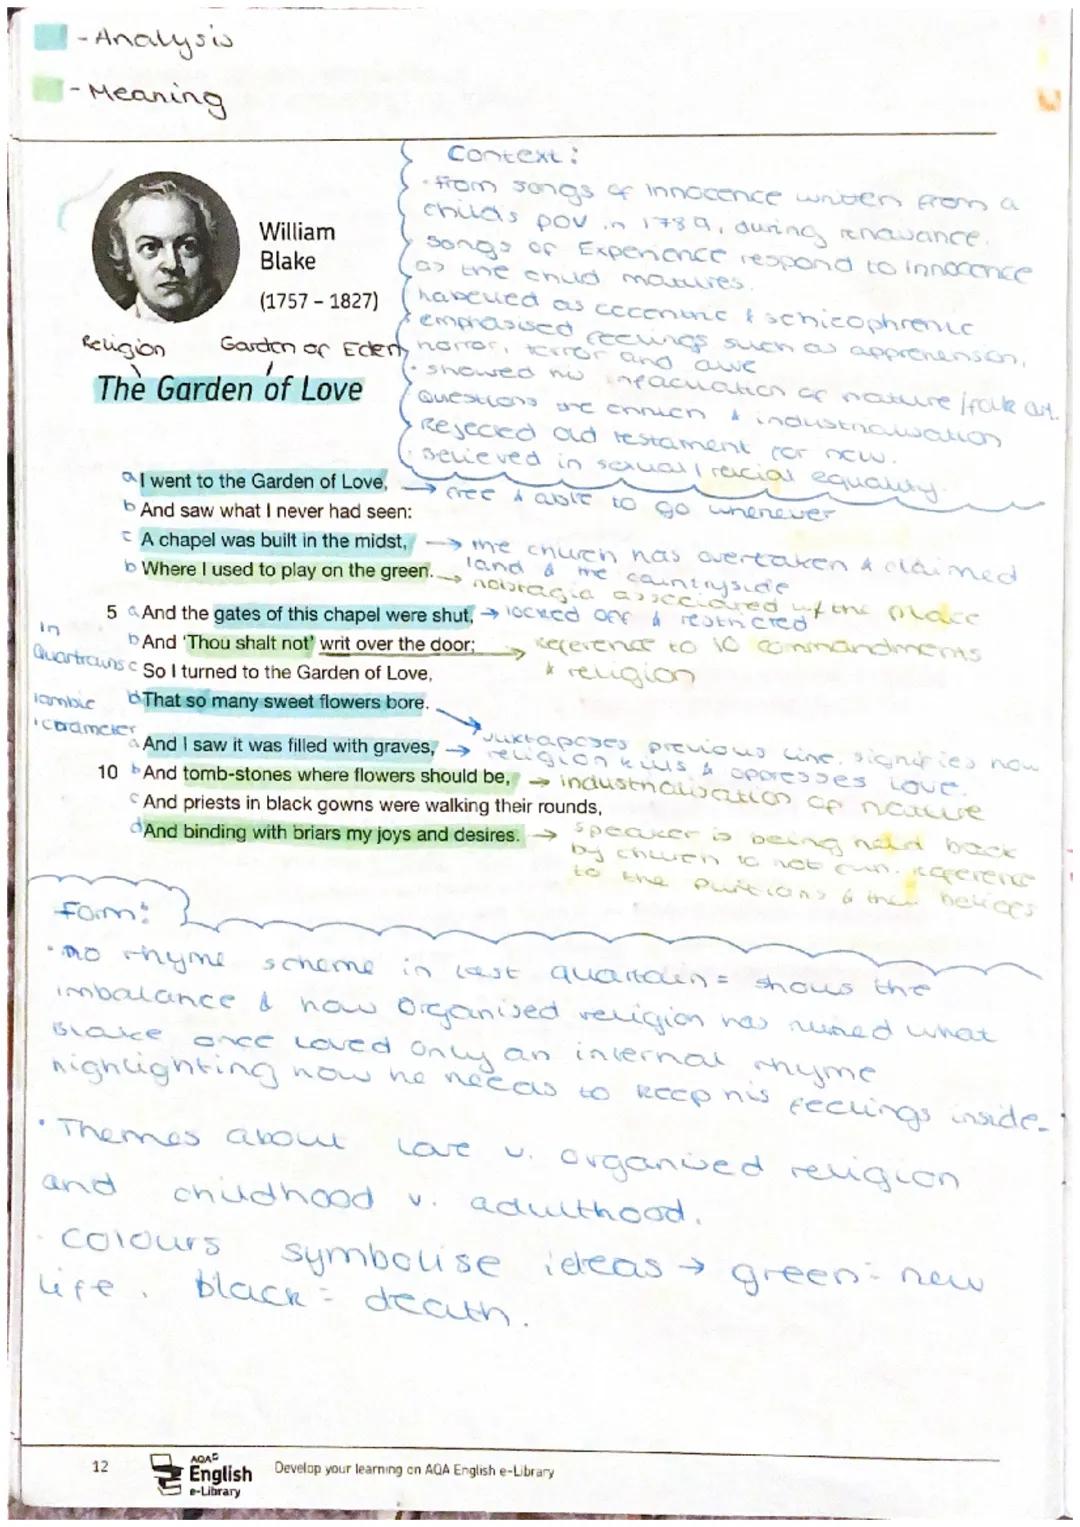 - Analysis
- Meaning
Context:
· from songs of innocence written from a
childs pov in 1789, during renaisance.
songs of Experience respond to innocence
as the child matures.
labelled as eccentric & schizophrenic
emphasised feelings such as apprehension,
horror, terror and awe
· showed his infacuation of nature/folk art.
Questions the church & industrialisation
Rejected old testament for new.
Believed in sexual/racial equality.
William
Blake
(1757 – 1827)
Religion
Garden of Eden
The Garden of Love
a I went to the Garden of Love, → free & able to go whenever
b And saw what I never had seen:
c A chapel was built in the midst, → the church has overtaken & claimed
land & the countryside
b Where I used to play on the green. → nolstagia associated w/ the place
5 a And the gates of this chapel were shut, → locked off & restricted
b And 'Thou shalt not' writ over the door; → Reference to 10 commandments
& religion
c So I turned to the Garden of Love,
b That so many sweet flowers bore.
in
Quartrains
iambic
Juxtaposes previous line, signifies how
religion kills & oppresses love.
a And I saw it was filled with graves, →
10 b And tomb-stones where flowers should be, → industrialisation of nature
c And priests in black gowns were walking their rounds,
d And binding with briars my joys and desires. → speaker is being held back
by church to not fun. reference
to the & their
form:
· no rhyme scheme in last = shows the
imbalance & how Organised religion has ruined what
Blake once loved only an internal rhyme
highlighting how he needs to keep his feelings inside.
· Themes about Love v. organised religion
and childhood v. adulthood.
· colours symbolise ideas → green = new
life, black = death.
12
AQA
English
e-Library
Develop your learning on AQA English e-Library